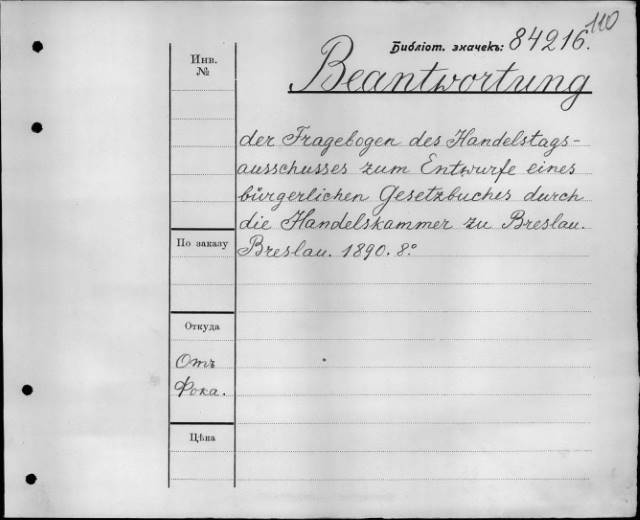 110
Библіот. значекъ: 84216.
Инв.
№
Beantwortung
der Fragebogen des Handelstags-
ausschusses zum Entwurfe eines
bürgerlichen Gesetzbuches durch
die Handelskammer zu Breslau.
По заказу
Breslau. 1890. 8.°
Откуда
Отъ
Фока.
Цѣна